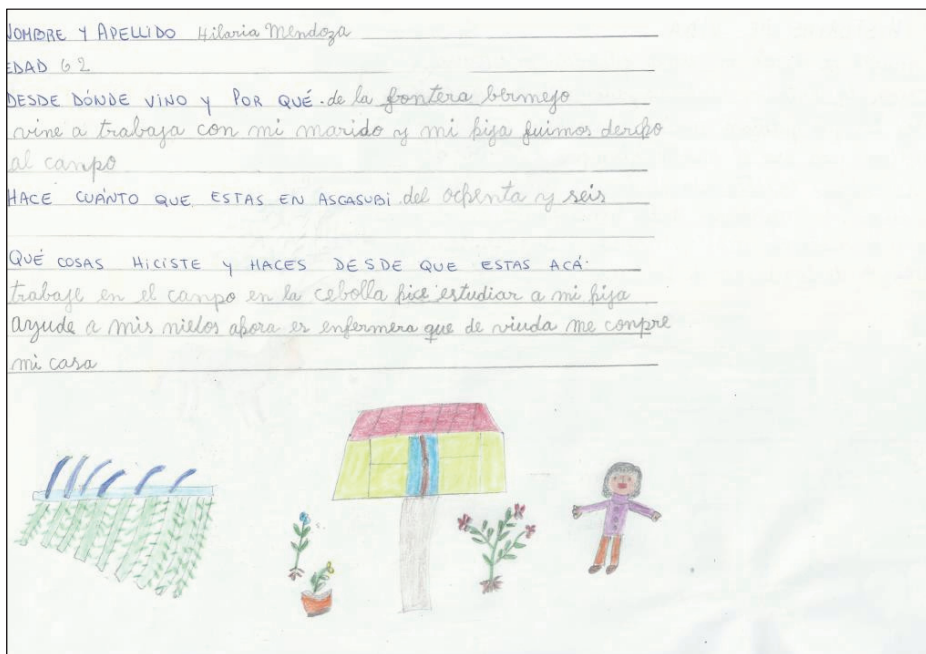 NOMBRE Y APELLIDO Hilaria Mendoza
EDAD 62
DESDE DÓNDE VINO Y POR QUÉ. de la frontera bermejo
vine a trabaja con mi marido y mi hija fuimos derecho
al campo
HACE CUÁNTO QUE ESTAS EN ASCASUBI del ochenta y seis
QUÉ COSAS HICISTE Y HACES DESDE QUE ESTAS ACÁ.
trabaje en el campo en la cebolla hice estudiar a mi hija
ayude a mis nietos ahora es enfermera que de viuda me conpre
mi casa